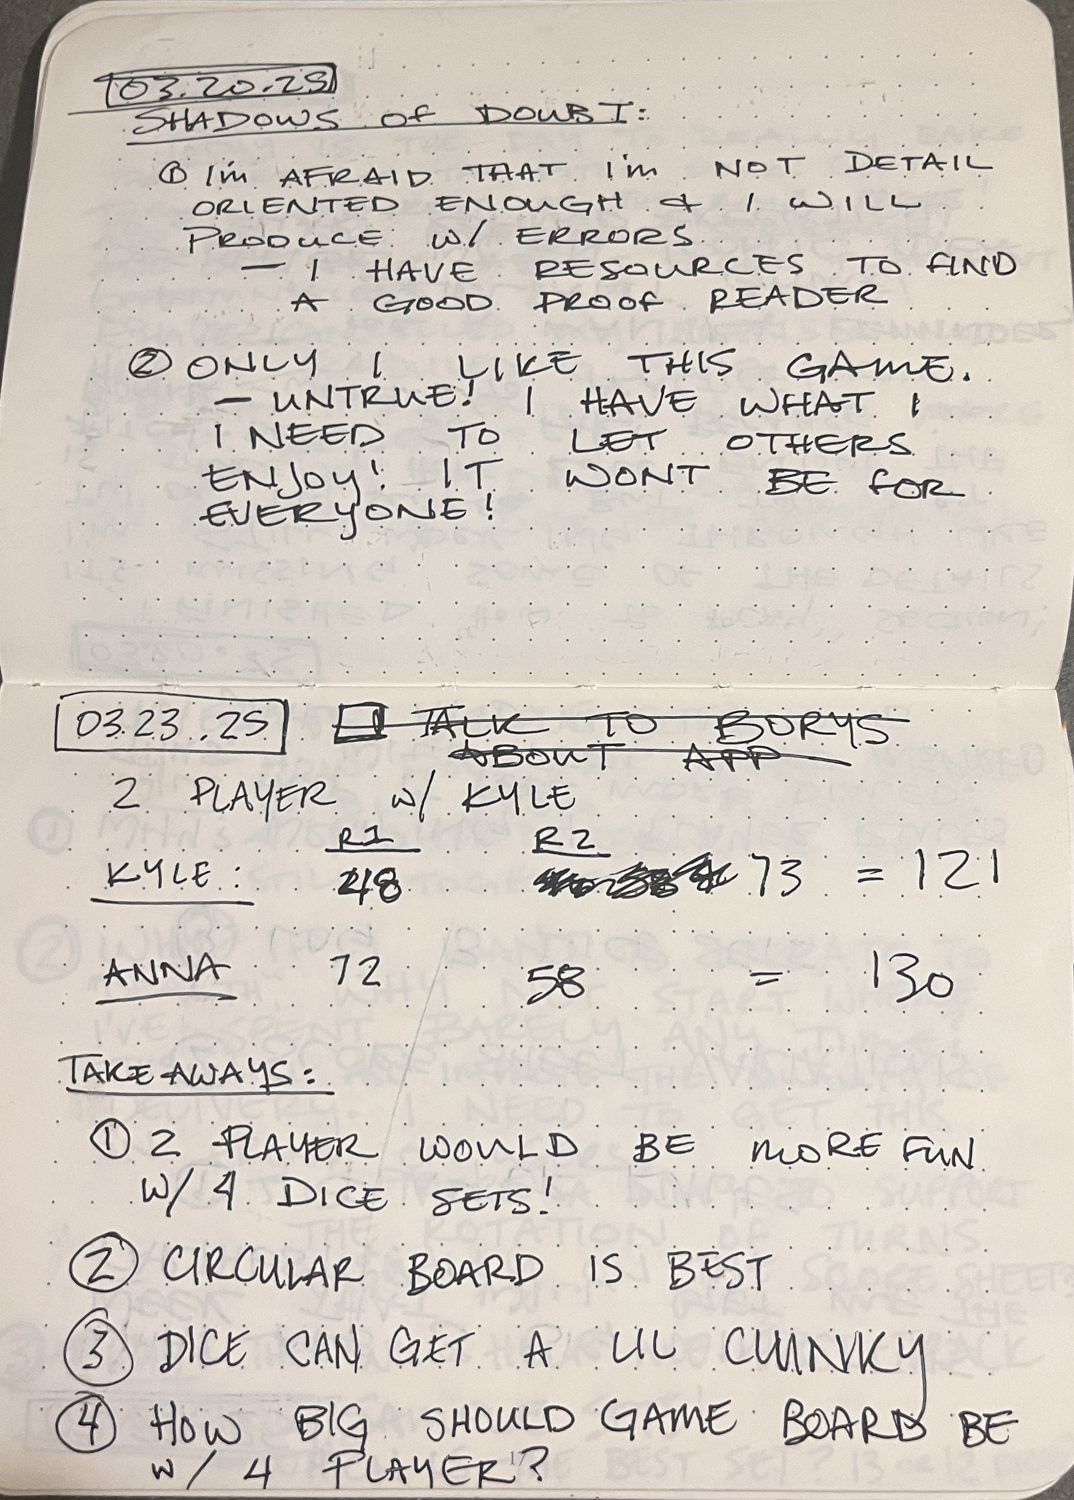 03.20.25
SHADOWS OF DOUBT:
① I'm AFRAID THAT I'm NOT DETAIL
ORIENTED ENOUGH & I WILL
PRODUCE W/ ERRORS
— I HAVE RESOURCES TO FIND
A GOOD PROOF READER
② ONLY I LIKE THIS GAME.
— UNTRUE! I HAVE WHAT I
I NEED TO LET OTHERS
ENJOY! IT WONT BE FOR
EVERYONE!
03.23.25 TALK TO BORYS
ABOUT APP
2 PLAYER W/ KYLE
R1 R2
KYLE: 48 73 = 121
ANNA 72 58 = 130
TAKE AWAYS:
① 2 PLAYER WOULD BE MORE FUN
W/ 4 DICE SETS!
② CIRCULAR BOARD IS BEST
③ DICE CAN GET A LIL CLUNKY
④ HOW BIG SHOULD GAME BOARD BE
W/ 4 PLAYER?